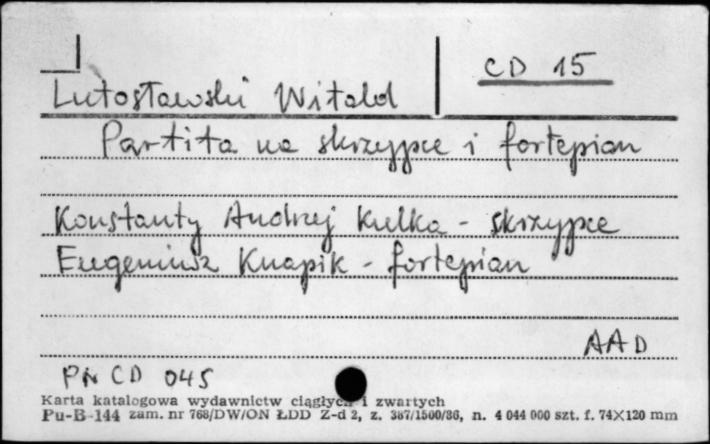 CD 15
Lutosławski Witold
Partita na skrzypce i fortepian
Konstanty Andrzej Kulka - skrzypce
Eugeniusz Knapik - fortepian
AAD
PN CD 045
Karta katalogowa wydawnictw ciągłych i zwartych
Pu-B-144 zam. nr 768/DW/ON ŁDD Z-d 2, z. 387/1500/86, n. 4 044 000 szt. f. 74×120 mm